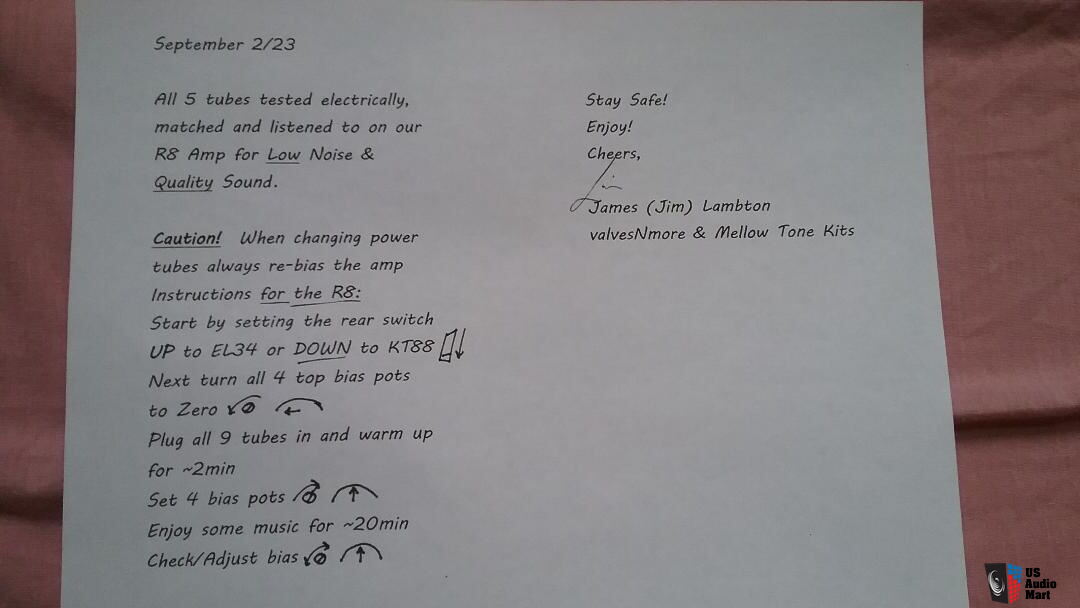 September 2/23
All 5 tubes tested electrically,
matched and listened to on our
R8 Amp for Low Noise &
Quality Sound.
Caution! When changing power
tubes always re-bias the amp
Instructions for the R8:
Start by setting the rear switch
UP to EL34 or DOWN to KT88
Next turn all 4 top bias pots
to Zero
Plug all 9 tubes in and warm up
for ~2min
Set 4 bias pots
Enjoy some music for ~20min
Check/Adjust bias
Stay Safe!
Enjoy!
Cheers,
Jim
James (Jim) Lambton
valvesNmore & Mellow Tone Kits
US
Audio
Mart